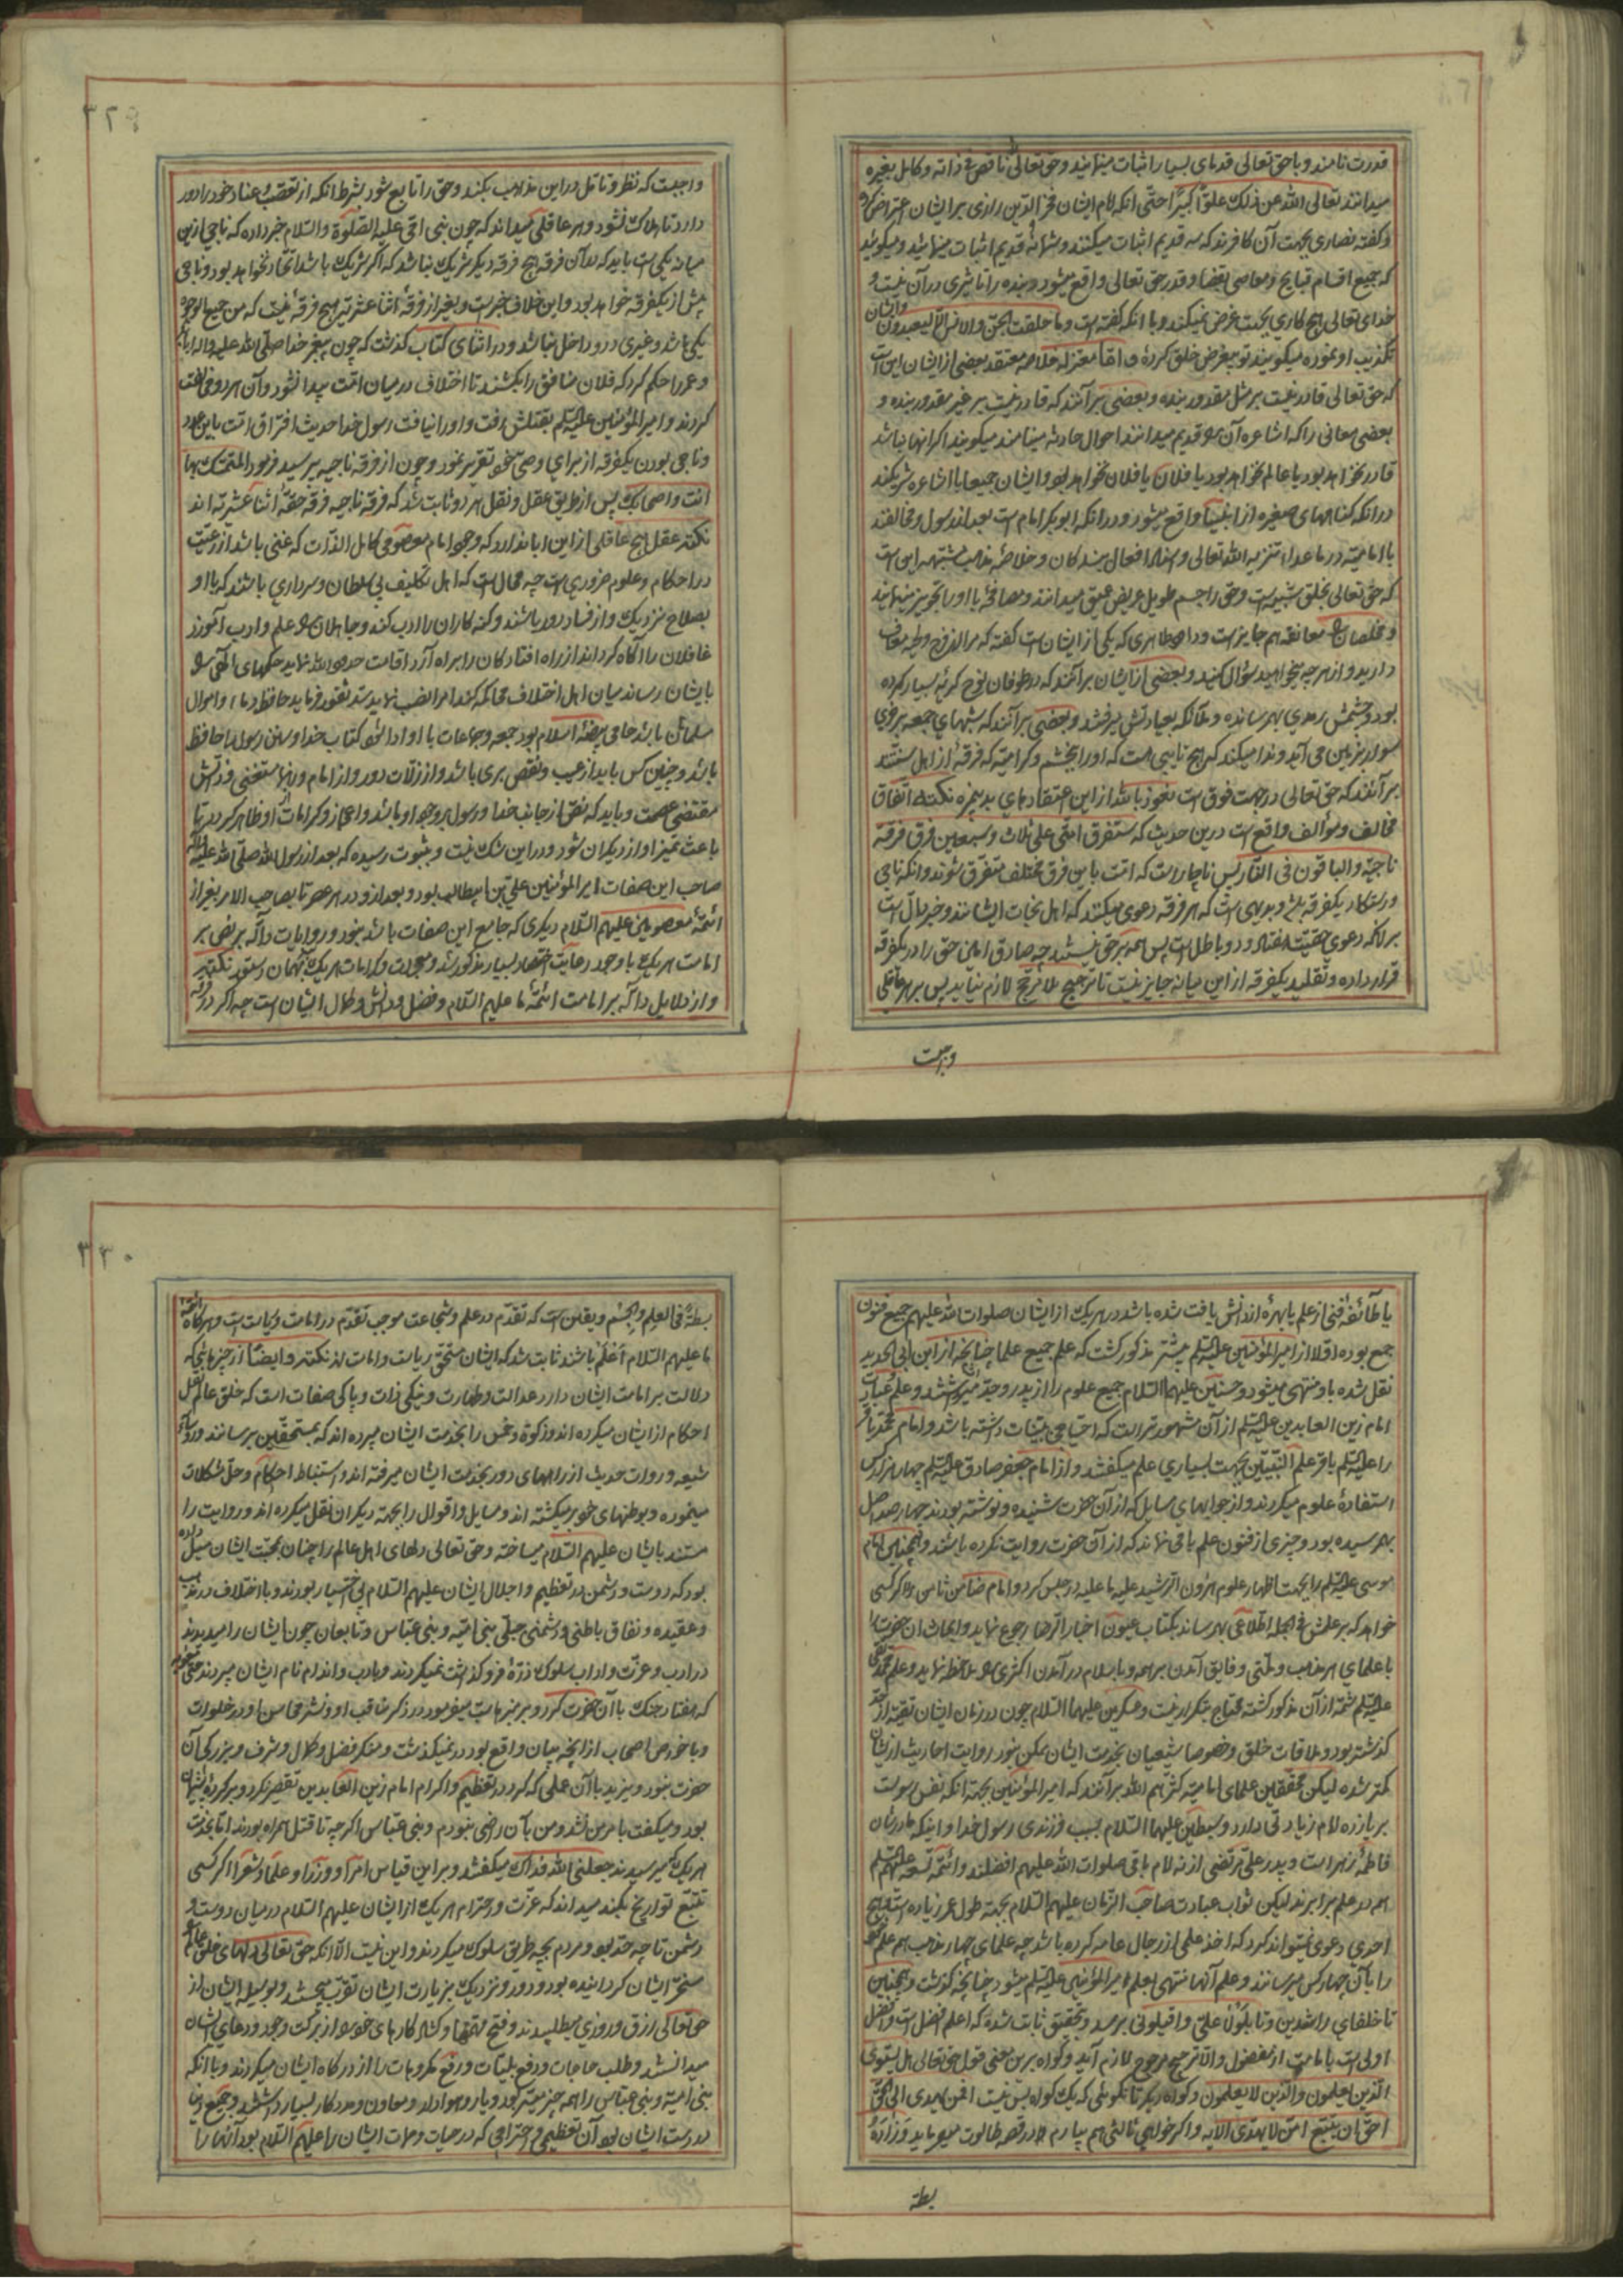 قدرت نامند و با حق تعالی قدمای بسیار اثبات مینمایند و حق تعالی را ناقص فی ذاته و کامل بغیره
میدانند تعالی الله عن ذلک علواً کبیراً حتی انکه امام ایشان فخر الدین رازی بر ایشان اعتراض کرده
و کفته نصاری بجهت آن کافرند که سه قدیم اثبات میکنند و شما نه قدیم اثبات مینمائید و میکوئید
که جمیع اقسام قبایح و معاصی بقضا و قدر حق تعالی واقع میشود و بنده را تاثیری در آن نیست و
خدای تعالی هیچ کاری بجهت غرض نمیکند و با انکه کفته است و ما خلقت الجن و الانس الا لیعبدون و ایشان
تکذیب او نموده میکویند تو بیغرض خلق کردهٔ و اما معتزله خلاصه معتقد بعضی از ایشان این است
که حق تعالی قادر نیست بر مثل مقدور بنده و بعضی بر آنند که قادر نیست بر غیر مقدور بنده و
بعضی معانی را که اشاعره آن را قدیم میدانند احوال حادثه مینامند میکویند اکر انها نباشد
قادر نخواهد بود یا عالم نخواهد بود یا فلان یا فلان نخواهد بود و ایشان جمیعا با اشاعره شریکند
در انکه کناههای صغیره از انبیا واقع میشود و در انکه ابوبکر امام است بعد از رسول و مخالفند
با امامیه در ما عدا تنزیه الله تعالی و اسناد افعال ببندکان و خلاصهٔ مذهب مشبهه این است
که حق تعالی بخلق شبیه است و حق را جسم طویل عریض عمیق میدانند و مصافحهٔ با او را تجویز مینمایند
و مخلصان را معانقه هم جایز است و داود ظاهری که یکی از ایشان است کفته که مرا از فرج و لحیه معاف
دارید و از هر چه میخواهید سؤال کنید و بعضی از ایشان بر آنند که در طوفان نوح کریه بسیار کرده
بود و چشمش رمدی بهم رسانده و ملائکه بعیادتش میرفتند و بعضی بر آنند که شبهای جمعه بر خری
سوار بزمین می آید و ندا میکند که هیچ تایبی هست که او را ببخشم و کرامیه که فرقهٔ از اهل سنتند
بر آنند که حق تعالی در جهت فوق است نعوذ بالله از این اعتقادهای بدنیمزه نکته اتفاق
مخالف و مؤالف واقع است درین حدیث که ستفرق امتی علی ثلاث و سبعین فرق فرقة
ناجیة و الباقون فی النار پس ناچار است که امت باین فرق مختلف متفرق شوند و انکه ناجی
و رستکار یکفرقه باشد و بدیهی است که هر فرقه دعوی میکنند که اهل نجات ایشانند و خبر دال است
بر انکه دعوی حقیت هفتاد و دو باطل است پس همه بر حق نیستند چه صادق امین حق را در یکفرقه
قرار داده و تقلید یکفرقه از این میانه جایز نیست تا ترجیح بلا مرجح لازم نیاید پس بر هر عاقلی
واجبست
۳۲۹
واجبست که نظر و تامل در این مذاهب بکند و حق را تابع شود بشرط انکه از تعصب و عناد خود را دور
دارد تا هلاک نشود و هر عاقلی میداند که چون نبی امی علیه الصلوة و السلام خبر داده که ناجی ازین
میانه یکی است باید که با آن فرقه هیچ فرقه دیکر شریک نباشد که اکر شریک باشد اتحاد نخواهد بود و ناجی
بیش از یکفرقه خواهد بود و این خلاف خبر است و بغیر از فرقهٔ اثنا عشریه هیچ فرقهٔ نیست که من جمیع الوجوه
یکی باشد و غیری در و داخل نباشد و در اثنای کتاب کذشت که چون پیغمبر خدا صلی الله علیه و اله ابابکر
و عمر را حکم کرد که فلان منافق را بکشند تا اختلاف در میان امت پیدا نشود و آن هر دو مخالفت
کردند و امیر المؤمنین علیه السلم بقتلش رفت و او را نیافت رسول خدا حدیث افتراق امت باین عدد
و ناجی بودن یکفرقه از برای وصی خود تقریر نمود و چون از فرقه ناجیه پرسید فرمود المتمسک بما
انت و اصحابک پس از طریق عقل و نقل هر دو ثابت شد که فرقه ناجیه فرقه حقهٔ اثنا عشریه اند
نکته عقل هیچ عاقلی از این ابا ندارد که وجود امام معصومی کامل الذات که غنی باشد از رعیت
در احکام و علوم ضروریست چه محال است که اهل تکلیف بی سلطان و سرداری باشند که با او
بصلاح نزدیک و از فساد دور باشند و کنه کاران را ادب کند و جاهلان را علم و ادب آموزد
غافلان را آکاه کرداند از راه افتادکان را براه آرد اقامت حدود الله نماید حکمهای الهی را
بایشان رساند میان اهل اختلاف محاکمه کند امرا نصب نماید سد ثغور فرماید حافظ دماء و اموال
مسلمانان باشد حامی بیضهٔ اسلام بود جمعه و جماعات با او ادا شود کتاب خدا و سنن رسول را حافظ
باشد و چنین کس باید از عیب و نقص بری باشد و از زلات دور و از امام و رهنما مستغنی و دانش
مقتضی عصمت و باید که نص از جانب خدا و رسول بر وجود او باشد و اعجاز و کرامات او ظاهر کردد تا
باعث تمیز او از دیکران شود و در این شک نیست و بثبوت رسیده که بعد از رسول الله صلی الله علیه و اله
صاحب این صفات امیر المؤمنین علی بن ابیطالب بود و بعد ازو در هر عصر تا بصاحب الامر بغیر از
ائمهٔ معصومین علیهم السلام دیکری که جامع این صفات باشد نبود و روایات داله بر نص بر
امامت هر یک با وجود رعایت اختصار بسیار مذکور شد و معجزات و کرامات هر یک بهمان دستور نکته
و از دلایل داله بر امامت ائمهٔ ما علیهم السلام و فضل و دانش و کمال ایشان است چه اکر در فرقه
یا طائفهٔ فنی از علم یا بهرهٔ از دانش یافت شده باشد در هر یک از ایشان صلوات الله علیهم جمیع فنون
جمع بوده اولا از امیر المؤمنین علیه السلم بیشتر مذکور کشت که علم جمیع علما چنانچه از ابن ابی الحدید
نقل شده باو منتهی میشود و حسنین علیهما السلام جمیع علوم را از پدر و جد میراث داشتند و علم و عبادت
امام زین العابدین علیه السلم از آن مشهورتر است که احتیاجی ببینات داشته باشد و امام محمد باقر
را علیه السلم باقر علم النبیین بجهت بسیاری علم میکفتند و از امام جعفر صادق علیه السلم چهار هزار کس
استفادهٔ علوم میکردند و از جوابهای مسایل که از آن حضرت شنیده و نوشته بودند چهار صد اصل
بهم رسیده بود و چیزی از فنون علم باقی نماند که از آن حضرت روایت نکرده باشند و همچنین امام
موسی علیه السلم را بجهت اظهار علوم هرون الرشید علیه ما علیه در حبس کرد و امام ضامن ثامن را اکر کسی
خواهد که بر علمش فی الجمله اطلاعی بهم رساند بکتاب عیون اخبار الرضا رجوع نماید و ابحاث ان حضرت را
با علمای هر مذهب و ملتی و فایق آمدن بر همه و باسلام در آمدن اکثری را ملاحظه نماید و علم محمد تقی
علیه السلم شمهٔ از آن مذکور کشته محتاج بتکرار نیست و عسکریین علیهما السلام چون در زمان ایشان تقیه از حد
کذشته بود و ملاقات خلق و خصوصا شیعیان بخدمت ایشان ممکن نبود روایت احادیث از ایشان
کمتر شده لیکن محققین علمای امامیه کثرهم الله بر آنند که امیر المؤمنین بجهة انکه نفس رسولست
بر یازده امام زیادتی دارد و سبطین علیهما السلام بسبب فرزندی رسول خدا و اینکه مادرشان
فاطمهٔ زهراست و پدر علی مرتضی از نه امام باقی صلوات الله علیهم افضلند و ائمه تسعه علیهم السلم
همه در علم برابرند لیکن ثواب عبادت صاحب الزمان علیهم السلام بجهة طول عمر زیاده است و هیچ
احدی دعوی نمیتواند کرد که اخذ علمی از رجال عامه کرده باشد چه علمای چهار مذهب هم علم خود
را بآن چهار کس میرسانند و علم آنها منتهی بعلم امیر المؤمنین علیه السلم میشود چنانچه کذشت و همچنین
تا خلفای راشدین و تا بلولا علی و اقیلونی برسد و بتحقیق ثابت شد که اعلم افضل است و افضل
اولی است بامامت از مفضول و الا ترجیح مرجوح لازم آید و کواه برین معنی قول حق تعالی هل یستوی
الذین یعلمون و الذین لا یعلمون و کواه دیکر تا نکوئی که یک کواه بس نیست افمن یهدی الی الحق
احق ان یتبع امن لا یهدی الایه و اکر خواهی ثالثی هم بیارم در قصه طالوت میفرماید و زاده
بسطة
۳۳۰
بسطة فی العلم و الجسم و یقین است که تقدم در علم و شجاعت موجب تقدم در امامت و ریاست است و هر کاه ائمه
ما علیهم السلام اعلم باشند ثابت شد که ایشان مستحق ریاست و امامت اند نکته و ایضاً از چیزهائی که
دلالت بر امامت ایشان دارد عدالت و طهارت و نیکی ذات و پاکی صفات است که خلق عالم نقل
احکام از ایشان میکرده اند و زکوة و خمس را بخدمت ایشان میبرده اند که بمستحقین برسانند و رؤساء
شیعه و روات حدیث از راههای دور بخدمت ایشان میرفته اند و استنباط احکام و حل مشکلات
مینموده و بوطنهای خود برمیکشته اند و مسایل و اقوال را بجهة دیکران نقل میکرده اند و روایت را
مستند بایشان علیهم السلام میساخته و حق تعالی دلهای اهل عالم را چنان بمحبت ایشان میل داده
بود که دوست و دشمن در تعظیم و اجلال ایشان علیهم السلام بی اختیار بودند و با اختلاف در مذهب
و عقیده و نفاق باطنی و دشمنی جبلی بنی امیه و بنی عباس و تابعان چون ایشان را میدیدند
در ادب و عزت و اداب سلوک ذرهٔ فرو کذاشت نمیکردند و بادب و اندام نام ایشان میبردند حتی معویه
که هفتاد جنک با آن حضرت کرد و بر منبر هاست میفرمود در ذکر مناقب او و نشر محاسن او در خلوات
و با خواص اصحاب از انچه بیان واقع بود در نمیکذشت و منکر فضل و کمال و شرف و بزرکی آن
حضرت نبود و یزید با آن عملی که کرد در تعظیم و اکرام امام زین العابدین تقصیر نکرد و بر کردهٔ پشیمان
بود و میکفت بامر من نشد و من بآن راضی نبودم و بنی عباس اکرچه تا قتل همراه بودند اما بخدمت
هر یک میرسیدند جعلنی الله فداک میکفتند و بر این قیاس امرا و وزرا و علما و شعرا اکر کسی
تتبع تواریخ بکند میداند که عزت و احترام هر یک از ایشان علیهم السلام در میان دوست و
دشمن تا چه حد بود و مردم بچه طریق سلوک میکردند و این نیست الا انکه حق تعالی دلهای خلق عالم
مسخر ایشان کردانیده بود و دور و نزدیک بزیارت ایشان تقرب میجستند و بوسیلهٔ ایشان از
حق تعالی رزق و روزی میطلبیدند و فتح مهمها و کشاد کارهای خود را از برکت وجود و دعای ایشان
میدانستند و طلب حاجات و دفع بلیات و رفع مکروهات را از درکاه ایشان میکردند و با انکه
بنی امیه و بنی عباس را همه چیز میسر بود و یار و هوادار و معاون و مددکار بسیار داشتند و جمیع دنیا
در دست ایشان بود آن تعظیمی و احترامی که در حیات و ممات ایشان را علیهم السلام بود آنها را